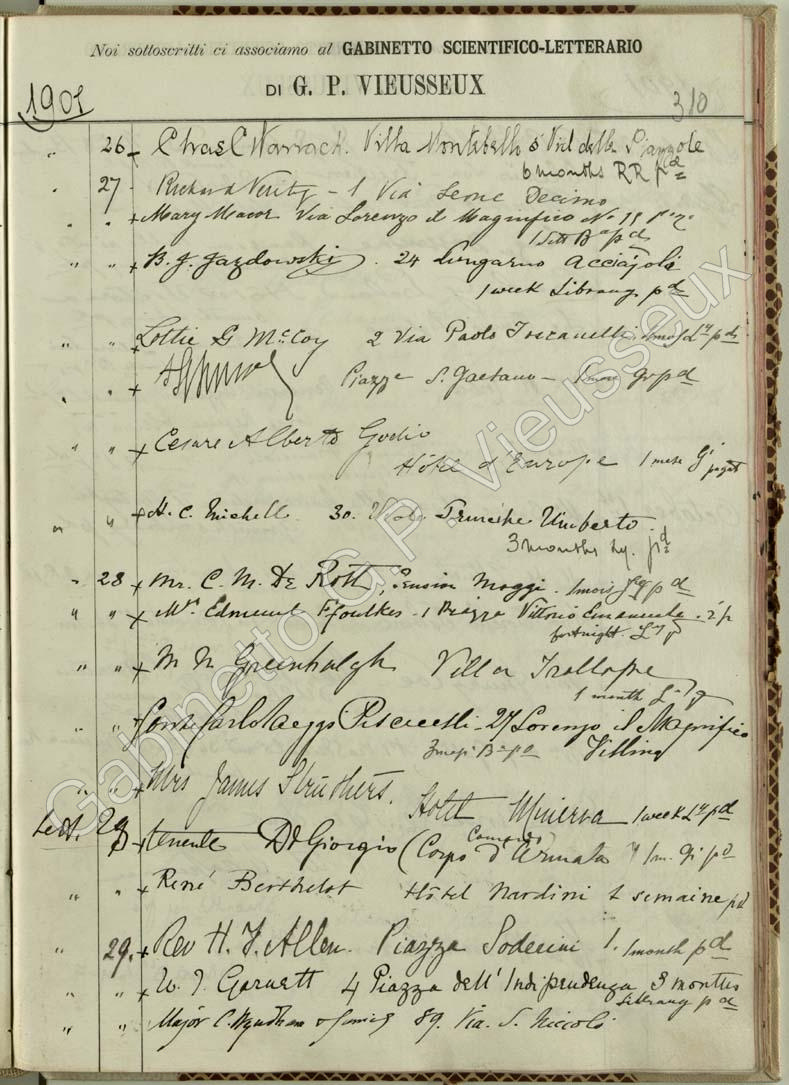 Noi sottoscritti ci associamo al GABINETTO SCIENTIFICO-LETTERARIO
DI G. P. VIEUSSEUX
1901
310
" 26 Chas C Warrack. Villa Montebello 5 Viale delle Piazzole
6 months RR pd
" 27 Richard Verity - 1 Via Leone Decimo
" " + Mary Via Lorenzo il Magnifico No
1 Sett pd
" " + B. J. Jazdowski. 24 Lungarno Acciajoli
1 week Library pd
" " + Lottie G McCoy 2 Via Paolo Toscanelli 1 mo Ly pd
" " + Piazza S. Gaetano - 1 mois pd
" " + Cesare Alberto Godio
Hôtel d'Europe 1 mese Gi pagat
" " + H. C. Michell 30. Viale Principe Umberto
3 months Ly. pd
" 28 + Mr. C. M. De Rott, Pension Maggi. 1 mois pd
" " + Mrs Edmund Ffoulkes. 1 Piazza Vittorio Emanuele. 2 p
fortnight Ly
" " + M N Greenhalgh Villa Trollope
1 month Ly
" " + Conte Carlo Piscicelli 27 Lorenzo il Magnifico
3 mesi pd Villino
" " + Mrs James Struthers. Hotel Minerva 1 week Ly pd
Sett. 29 + tenente De Giorgio (Comando Corpo d'Armata) 1 m. Gi pd
" " + René Berthelot Hôtel Nardini 1 semaine pd
" 29. + Rev H. J. Allen. Piazza Soderini 1. 1 month pd
" " + W. J. Garnett 4 Piazza dell' Indipendenza 3 months
Library pd
" " + Major C. Wyndham 89. Via. S. Niccolò
Gabinetto G.P. Vieusseux